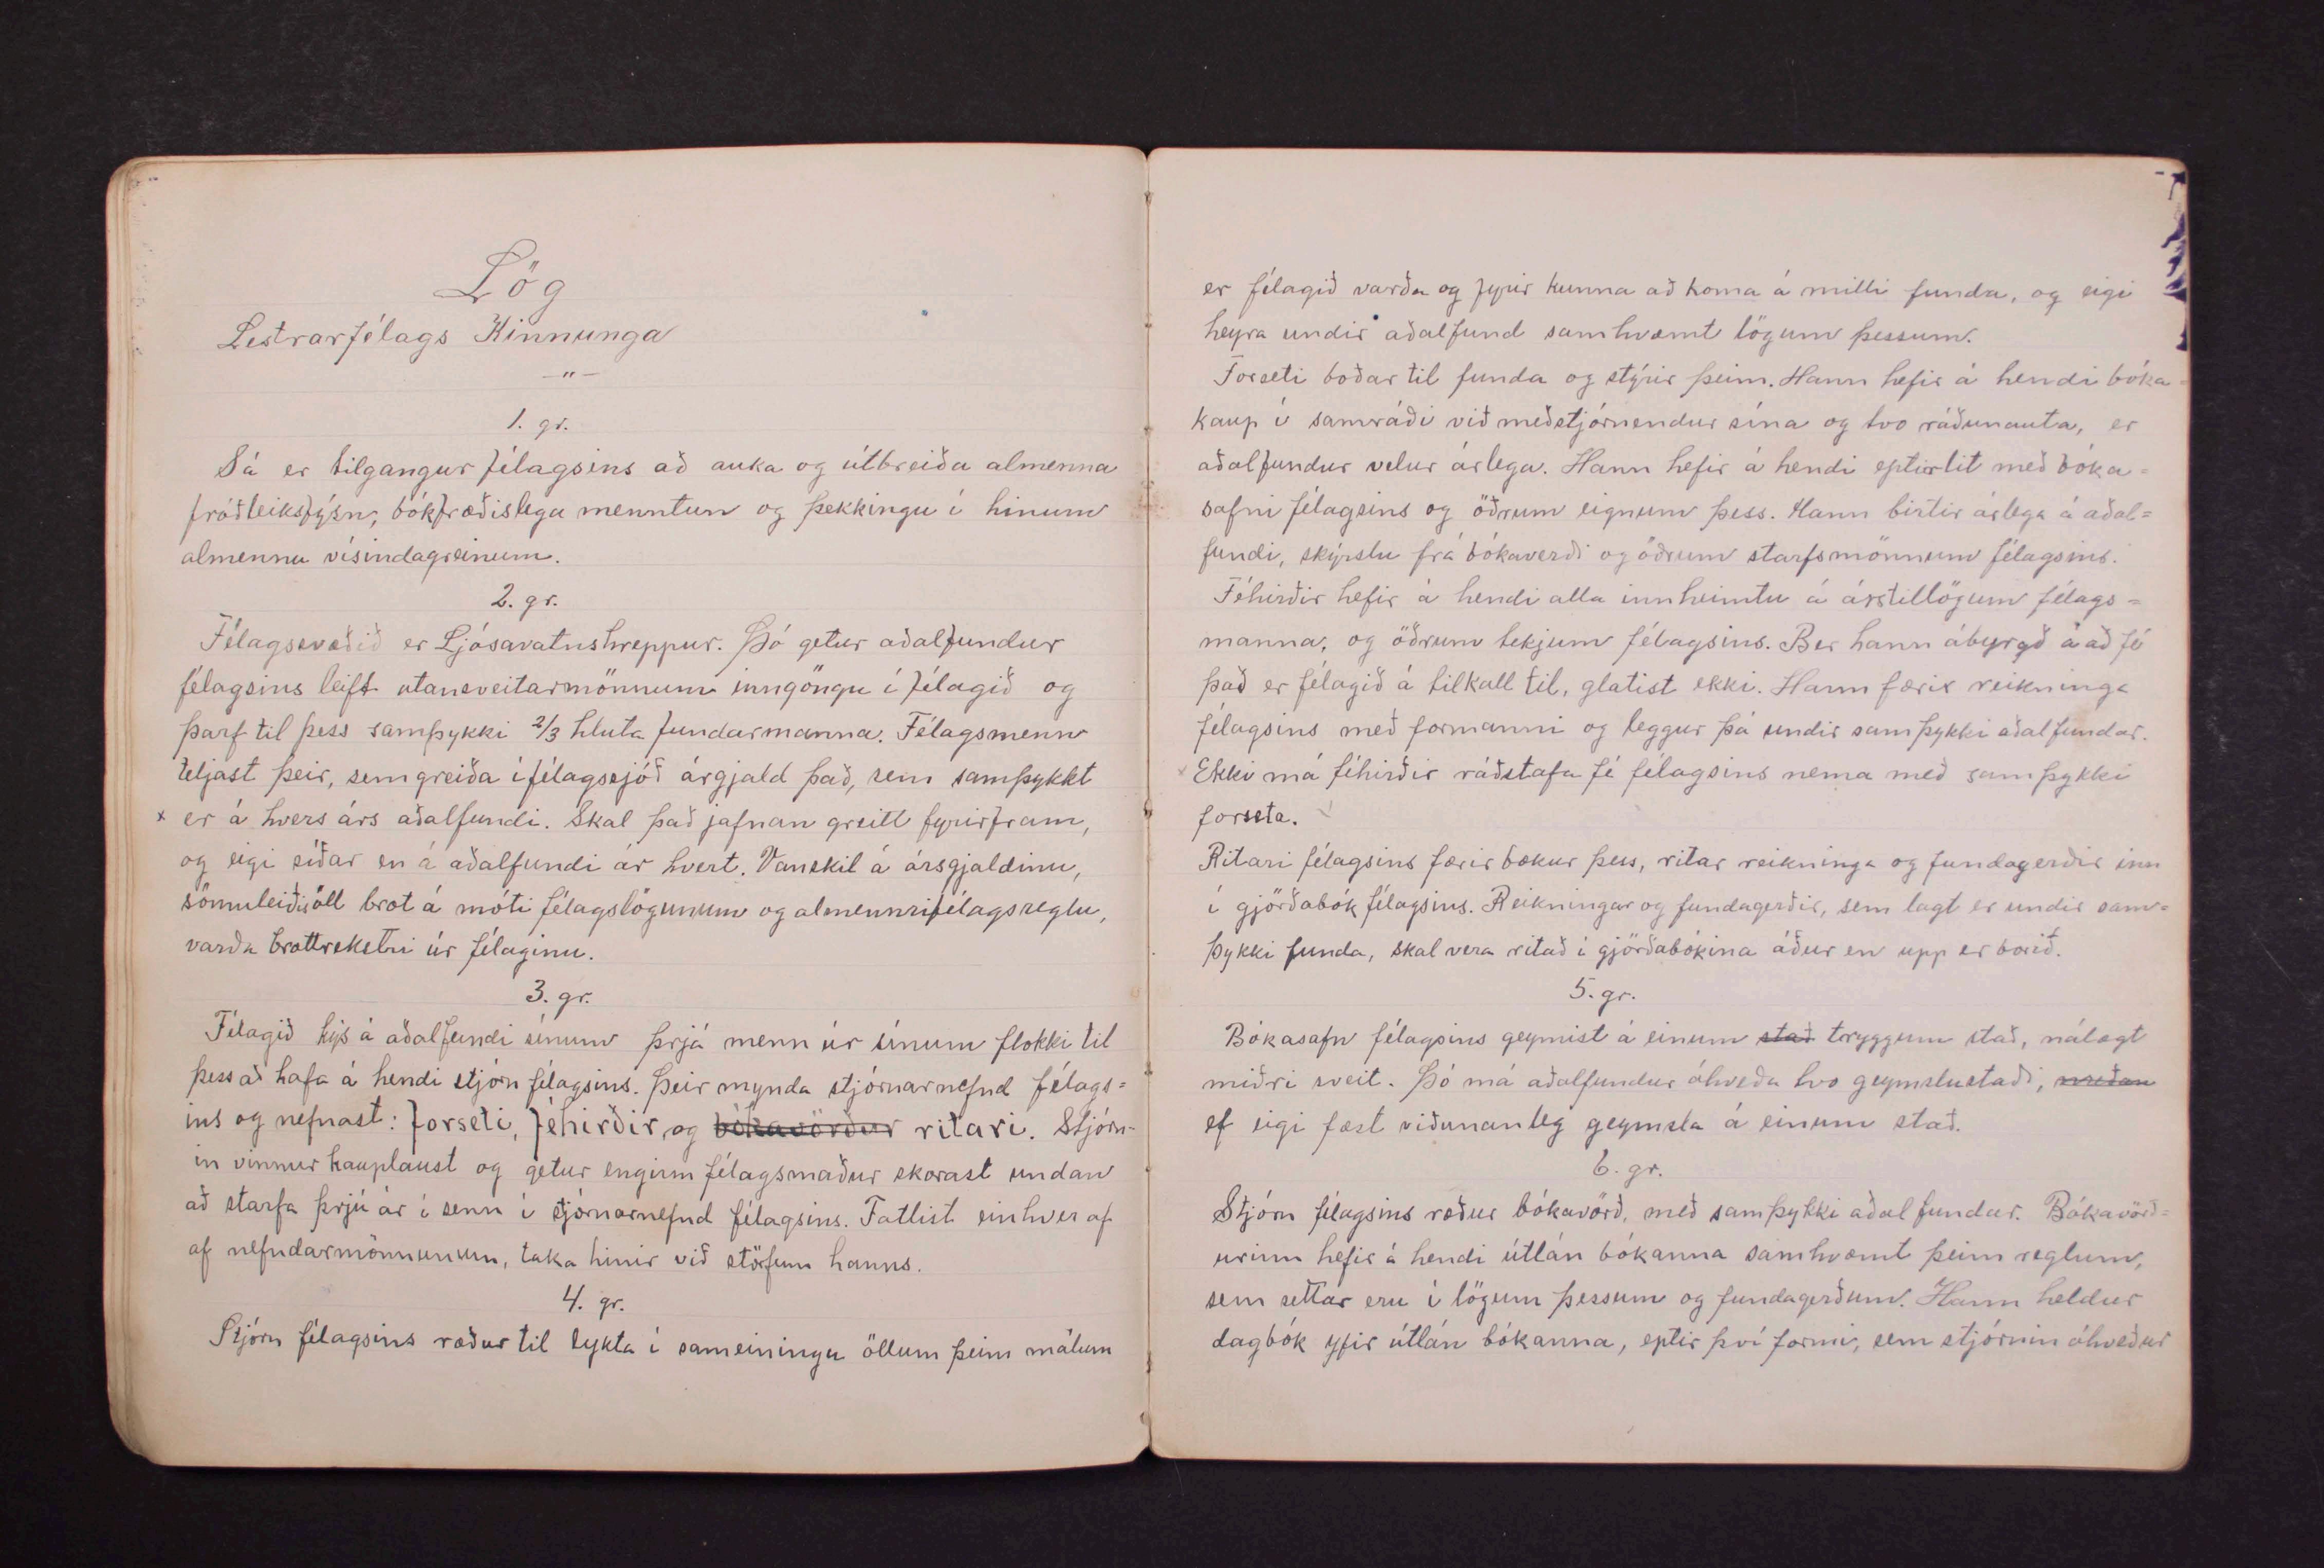 Lög
Lestrarfélags Kinnunga
-"-
1. gr.
Sá er tilgangur félagsins að auka og útbreiða almenna
fróðleiksfýsn, bókfræðislega menntun og þekkingu í hinum
almennu vísindagreinum.
2. gr.
Félagsvæðið er Ljósavatnshreppur. Þó getur aðalfundur
félagsins leift utansveitarmönnum inngöngu í félagið og
þarf til þess samþykki 2/3 hluta fundarmanna. Félagsmenn
teljast þeir, sem greiða í félagssjóð árgjald það, sem samþykkt
x er á hvers árs aðalfundi. Skal það jafnan greitt fyrirfram,
og eigi síðar en á aðalfundi ár hvert. Vanskil á ársgjaldinu,
sömuleiðis öll brot á móti félagslögunum og almennri félagsreglu,
varða brottrekstri úr félaginu.
3. gr.
Félagið kýs á aðalfundi sínum þrjá menn úr sínum flokki til
þess að hafa á hendi stjórn félagsins. Þeir mynda stjórnarnefnd félags=
ins og nefnast: forseti, féhirðir, og bókavörður ritari. Stjórn-
in vinnur kauplaust og getur enginn félagsmaður skorast undan
að starfa þrjú ár í senn í stjórnarnefnd félagsins. Fatlist einhver af
af nefndarmönnunum, taka hinir við störfum hanns.
4. gr.
Stjórn félagsins ræður til lykta í sameiningu öllum þeim málum
er félagið varða og fyrir kunna að koma á milli funda, og eigi
heyra undir aðalfund samkvæmt lögum þessum.
Forseti boðar til funda og stýrir þeim. Hann hefir á hendi bóka=
kaup í samráði við meðstjórnendur sína og tvo ráðunauta, er
aðalfundur velur árlega. Hann hefir á hendi eptirlit með bóka=
safni félagsins og öðrum eignum þess. Hann birtir árlega á aðal=
fundi, skýrslu frá bókaverði og öðrum starfsmönnum félagsins.
Féhirðir hefir á hendi alla innheimtu á árstillögum félags=
manna, og öðrum tekjum félagsins. Ber hann ábyrgð á að fé
það er félagið á tilkall til, glatist ekki. Hann færir reikninga
félagsins með formanni og leggur þá undir samþykki aðalfundar.
x Ekki má féhirðir ráðstafa fé félagsins nema með samþykki
forseta.
Ritari félagsins færir bækur þess, ritar reikninga og fundagerðir inn
í gjörðabók félagsins. Reikningar og fundagerðir, sem lagt er undir sam=
þykki funda, skal vera ritað í gjörðabókina áður en upp er borið.
5. gr.
Bókasafn félagsins geymist á einum stað tryggum stað, nálægt
miðri sveit. Þó má aðalfundur ákveða tvo geymslustaði,
ef eigi fæst viðunanleg geymsla á einum stað.
6. gr.
Stjórn félagsins ræður bókavörð, með samþykki aðalfundar. Bókavörð=
urinn hefir á hendi útlán bókanna samkvæmt þeim reglum,
sem settar eru í lögum þessum og fundagerðum. Hann heldur
dagbók yfir útlán bókanna, eptir því formi, sem stjórnin ákveður